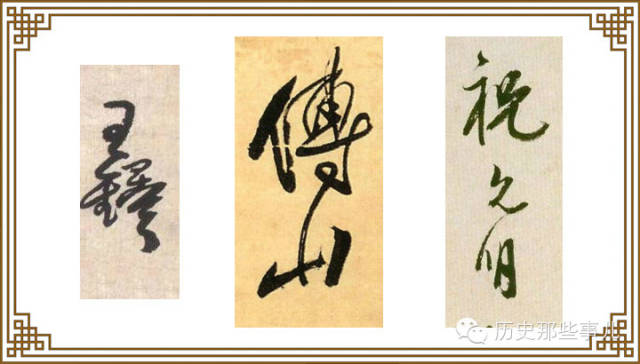 王鐸
傅山
祝允明
历史那些事儿